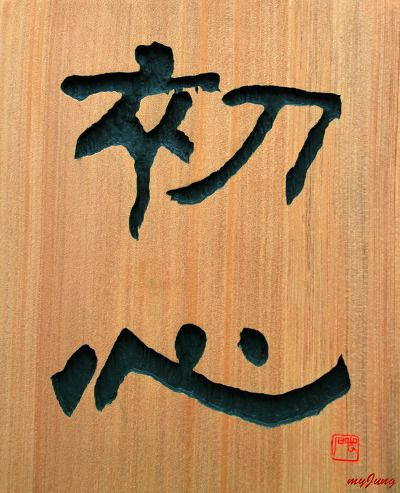 初
心
myJung